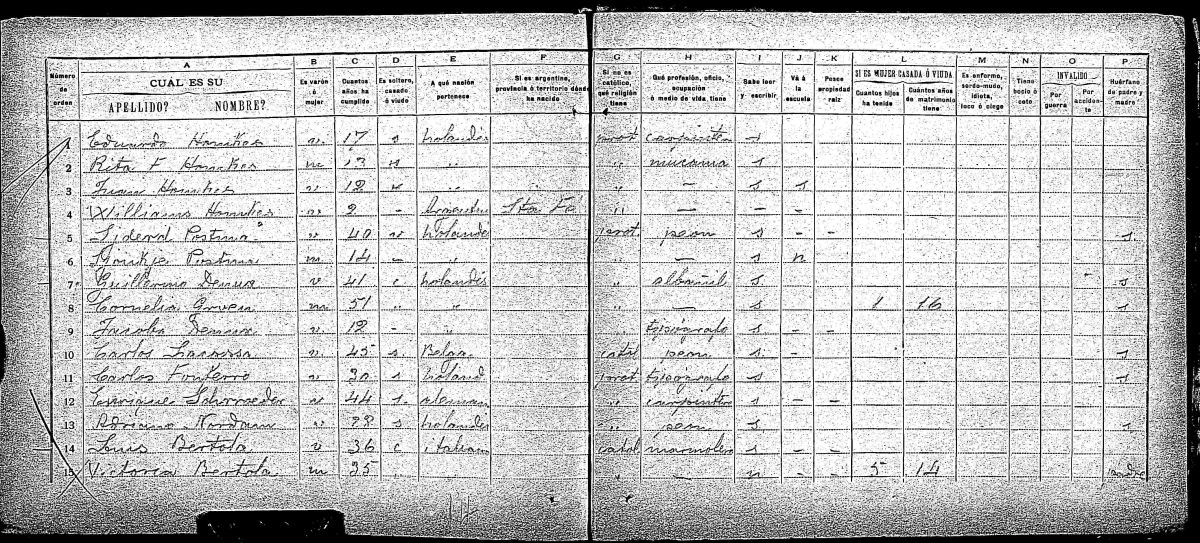 Número de orden
A
CUÁL ES SU
APELLIDO? NOMBRE?
B
Es varón ó mujer
C
Cuantos años ha cumplido
D
Es soltero, casado ó viudo
E
A qué nación pertenece
F
Si es argentino, provincia ó territorio donde ha nacido
G
Si no es católico, qué religión tiene
H
Qué profesión, oficio, ocupación ó medio de vida, tiene
I
Sabe leer y escribir
J
Vá á la escuela
K
Posee propiedad raiz
L
SI ES MUJER CASADA Ó VIUDA
Cuantos hijos ha tenido
Cuántos años de matrimonio tiene
M
Es enfermo, sordo-mudo, idiota, loco ó ciego
N
Tiene bocio ó coto
O
INVALIDO
Por guerra
Por accidente
P
Huérfano de padre y madre
1 Eduardo v. 17 s holandés prot carpintero s
2 Rita F m 13 " " mucama s
3 Juan v 12 " " — s s
4 Williams v 2 - Argentin Sta Fé " — — —
5 Postma v 40 v holandé prot. peon s - - s
6 Postma m 14 - " — s n
7 Guillermo v 41 c holandés " albañil s s
8 Cornelia m 51 " " " — s 1 16 s
9 v. 12 - " tipógrafo s - -
10 Carlos v. 45 s Belga catol peon s - s
11 Carlos v 30 s holand prot tipógrafo s s
12 Enrique Schroeder v 44 s. aleman " carpintero s - -
13 Adriano v 28 s holandés " peon s s
14 Luis Bertola v 36 c italiano catol marmolero s - -
15 Victoria Bertola m 35 " - n - - 5 14 madre